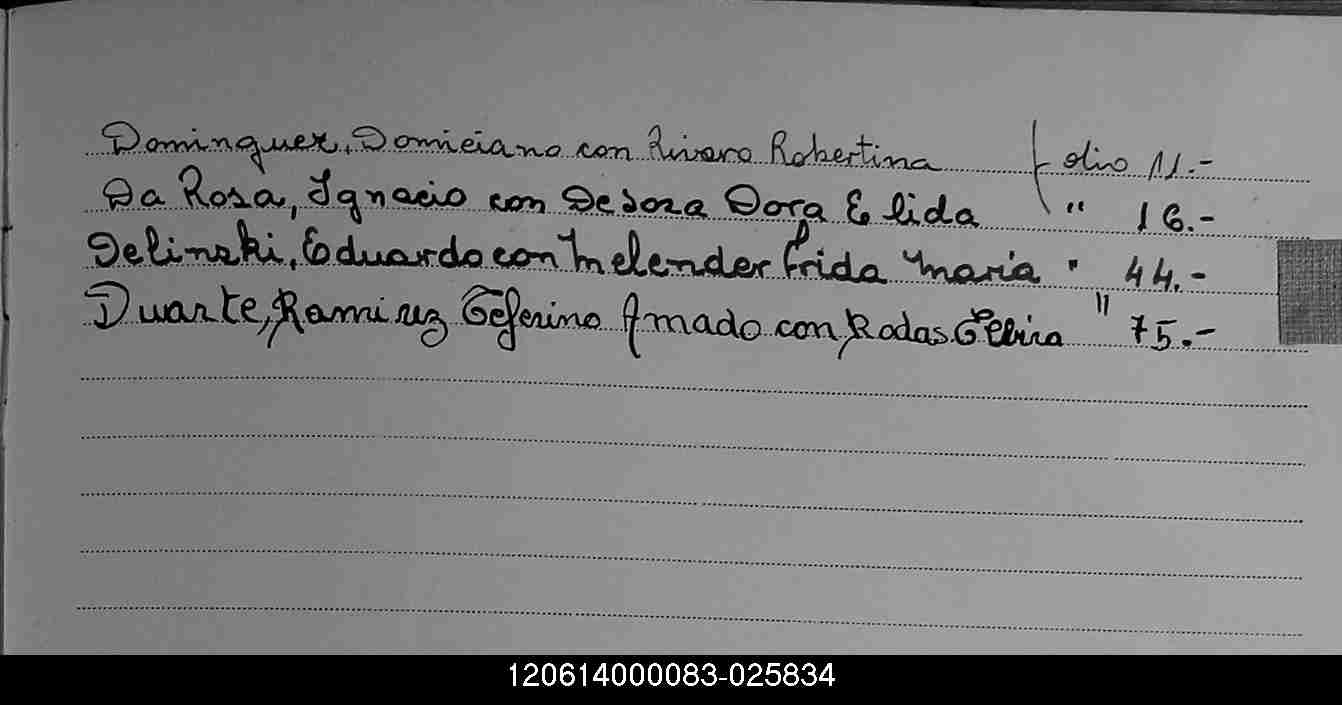 Dominguez, Domiciano con Rivero Robertina folio 11.-
Da Rosa, Ignacio con Desoza Dora Elida " 16.-
Delinski, Eduardo con Melender Frida Maria " 44.-
Duarte, Ramirez Ceferino Amado con Rodas Elvira " 75.-
120614000083-025834